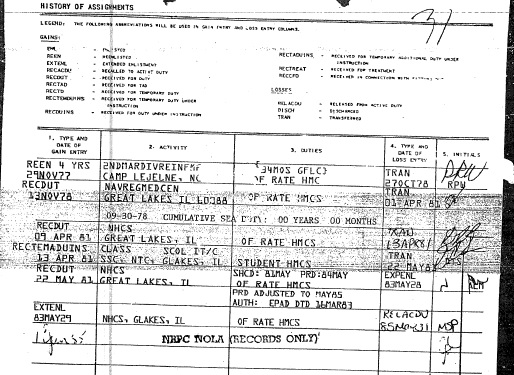 HISTORY OF ASSIGNMENTS
31
LEGEND: THE FOLLOWING ABBREVIATIONS WILL BE USED IN GAIN ENTRY AND LOSS ENTRY COLUMNS.
GAINS:
ENL - ENLISTED
REEN - REENLISTED
EXTENL - EXTENDED ENLISTMENT
RECACDU - RECALLED TO ACTIVE DUTY
RECDUT - RECEIVED FOR DUTY
RECTAD - RECEIVED FOR TAD
RECTD - RECEIVED FOR TEMPORARY DUTY
RECTEMDUINS - RECEIVED FOR TEMPORARY DUTY UNDER INSTRUCTION
RECDUINS - RECEIVED FOR DUTY UNDER INSTRUCTION
RECTADUINS - RECEIVED FOR TEMPORARY ADDITIONAL DUTY UNDER INSTRUCTION
RECTREAT - RECEIVED FOR TREATMENT
RECCFO - RECEIVED IN CONNECTION WITH
LOSSES
RELACDU - RELEASED FROM ACTIVE DUTY
DISCH - DISCHARGED
TRAN - TRANSFERRED
1. TYPE AND DATE OF GAIN ENTRY
2. ACTIVITY
3. DUTIES
4. TYPE AND DATE OF LOSS ENTRY
5. INITIALS
REEN 4 YRS 2NDMARDIVREINFMF (34MOS GFLC)
29NOV77 CAMP LEJEUNE, NC OF RATE HMC TRAN 27OCT78 RPW
RECDUT NAVREGMEDCEN TRAN
13NOV78 GREAT LAKES IL OF RATE HMCS 01 APR 81
09-30-78 CUMULATIVE SEA DUTY: 00 YEARS 00 MONTHS
RECDUT NHCS
09 APR 81 GREAT LAKES, IL OF RATE HMCS 13APR81
RECTEMADUINS CLASS SCOL IT/C TRAN
13 APR 81 SSC, NTC, GLAKES, IL STUDENT HMCS 22 MAY81
RECDUT NHCS SHCD: 81MAY PRD:84MAY EXPENL
22 MAY 81 GREAT LAKES, IL OF RATE HMCS 83MAY28
PRD ADJUSTED TO MAY85
AUTH: EPAD DTD 16MAR83
EXTENL RELACDU
83MAY29 NHCS, GLAKES, IL OF RATE HMCS 85MAY31
NRPC NOLA (RECORDS ONLY)